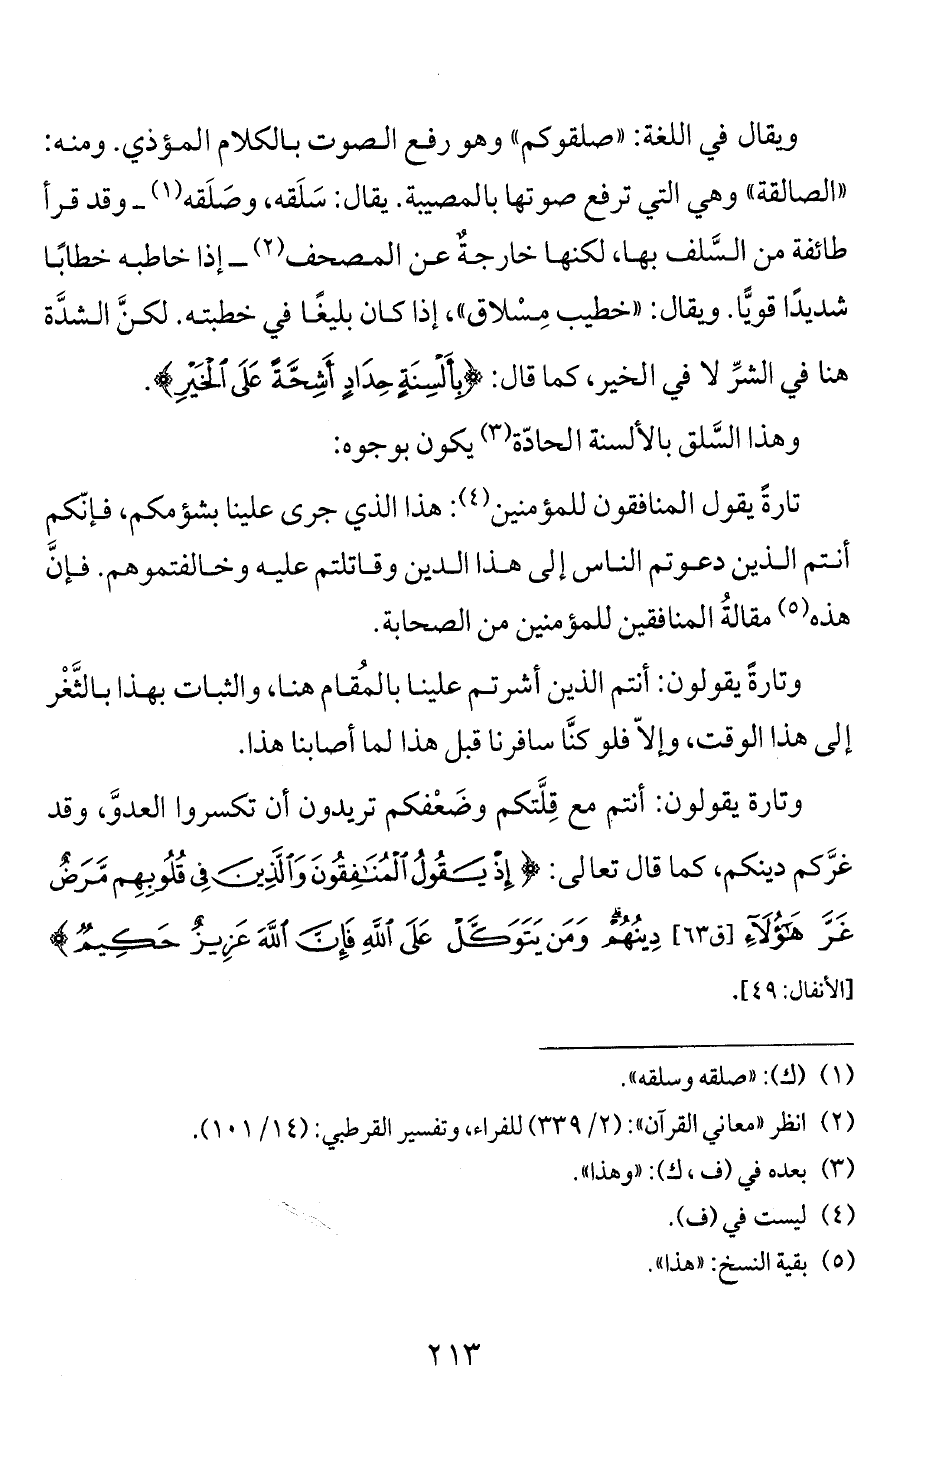 ويقال في اللغة: «صلقوكم» وهو رفع الصوت بالكلام المؤذي. ومنه:
«الصالقة» وهي التي ترفع صوتها بالمصيبة. يقال: سَلَقه، وصَلَقه(١) ـ وقد قرأ
طائفة من السَّلف بها، لكنها خارجةٌ عن المصحف(٢) ـ إذا خاطبه خطابًا
شديدًا قويًّا. ويقال: «خطيب مِسْلاق»، إذا كان بليغًا في خطبته. لكنَّ الشدَّة
هنا في الشرِّ لا في الخير، كما قال: ﴿بِأَلْسِنَةٍ حِدَادٍ أَشِحَّةً عَلَى ٱلْخَيْرِ﴾.
وهذا السَّلق بالألسنة الحادّة(٣) يكون بوجوه:
تارةً يقول المنافقون للمؤمنين(٤): هذا الذي جرى علينا بشؤمكم، فإنّكم
أنتم الذين دعوتم الناس إلى هذا الدين وقاتلتم عليه وخالفتموهم. فإنَّ
هذه(٥) مقالةُ المنافقين للمؤمنين من الصحابة.
وتارةً يقولون: أنتم الذين أشرتم علينا بالمُقام هنا، والثبات بهذا بالثَّغْر
إلى هذا الوقت، وإلاّ فلو كنَّا سافرنا قبل هذا لما أصابنا هذا.
وتارة يقولون: أنتم مع قِلَّتكم وضَعْفكم تريدون أن تكسروا العدوَّ، وقد
غرَّكم دينكم، كما قال تعالى: ﴿إِذْ يَقُولُ ٱلْمُنَٰفِقُونَ وَٱلَّذِينَ فِى قُلُوبِهِم مَّرَضٌ
غَرَّ هَٰٓؤُلَآءِ [ق٦٣] دِينُهُمْ ۗ وَمَن يَتَوَكَّلْ عَلَى ٱللَّهِ فَإِنَّ ٱللَّهَ عَزِيزٌ حَكِيمٌ﴾
[الأنفال: ٤٩].
(١) (ك): «صلقه وسلقه».
(٢) انظر «معاني القرآن»: (٢/ ٣٣٩) للفراء، وتفسير القرطبي: (١٤/ ١٠١).
(٣) بعده في (ف، ك): «وهذا».
(٤) ليست في (ف).
(٥) بقية النسخ: «هذا».
٢١٣